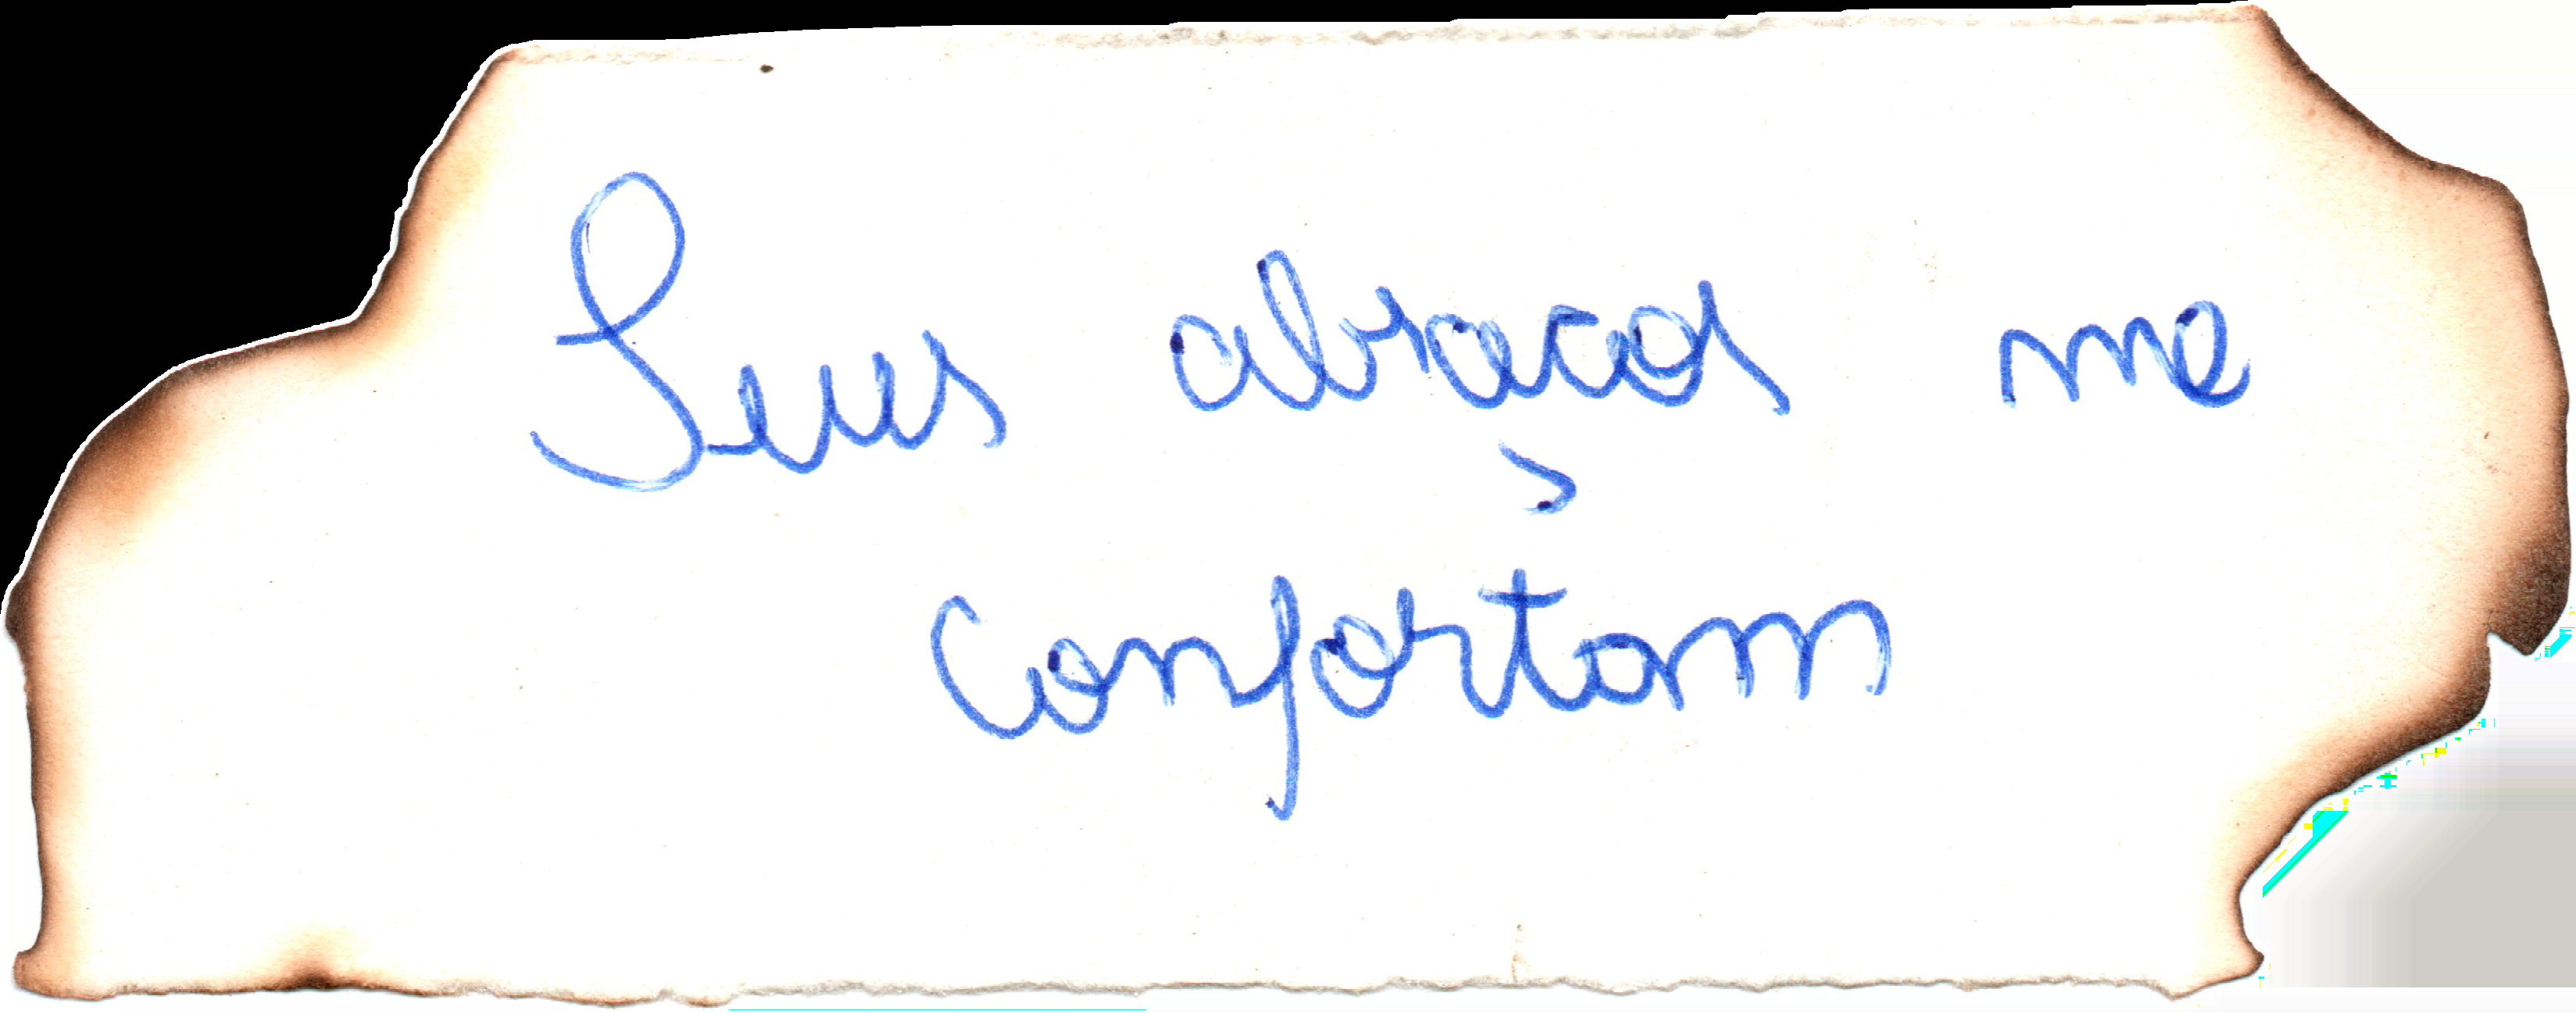 Seus abraços me
confortam